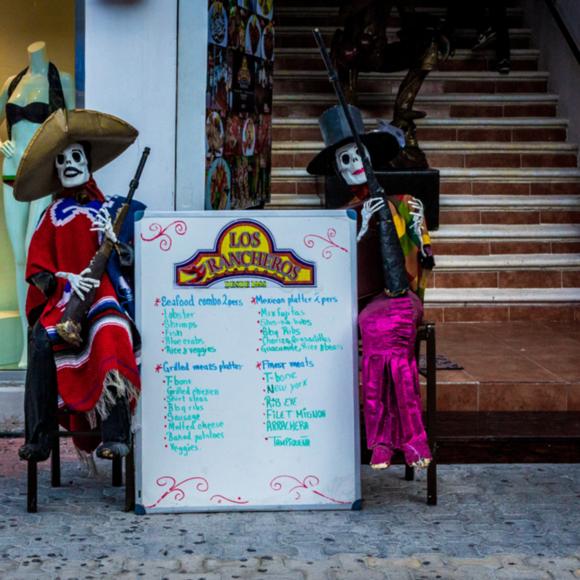 LOS
RANCHEROS
DESDE
Seafood combo 2 pers
Lobster
Shrimps
Fish
Blue crabs
Rice & veggies
Mexican platter 2 pers
Mix fajitas
Bbq Ribs
Chorizo, Quesadillas
Guacamole, Rice & Beans
Grilled meats platter
T-bone
Grilled chicken
Bbq ribs
Sausage
Melted cheese
Baked potatoes
Veggies
Finest meats
T-bone
New york
RIB EYE
FILET MIGNON
ARRACHERA
TAMPIQUEÑA